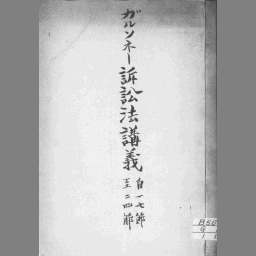 ガルソネー訴訟法講義
自一七節
至二四節